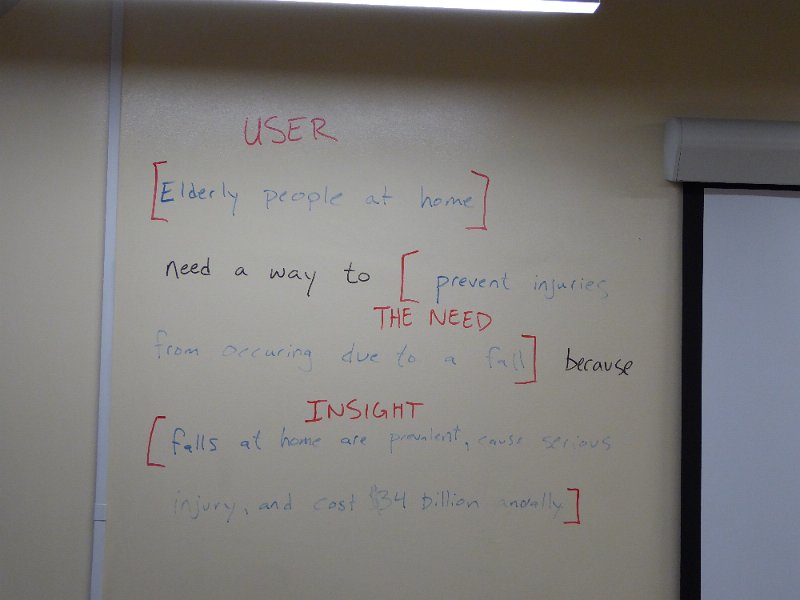 USER
[Elderly people at home]
need a way to [prevent injuries
THE NEED
from occuring due to a fall] because
INSIGHT
[falls at home are prevalent, cause serious
injury, and cost $34 billion anually]